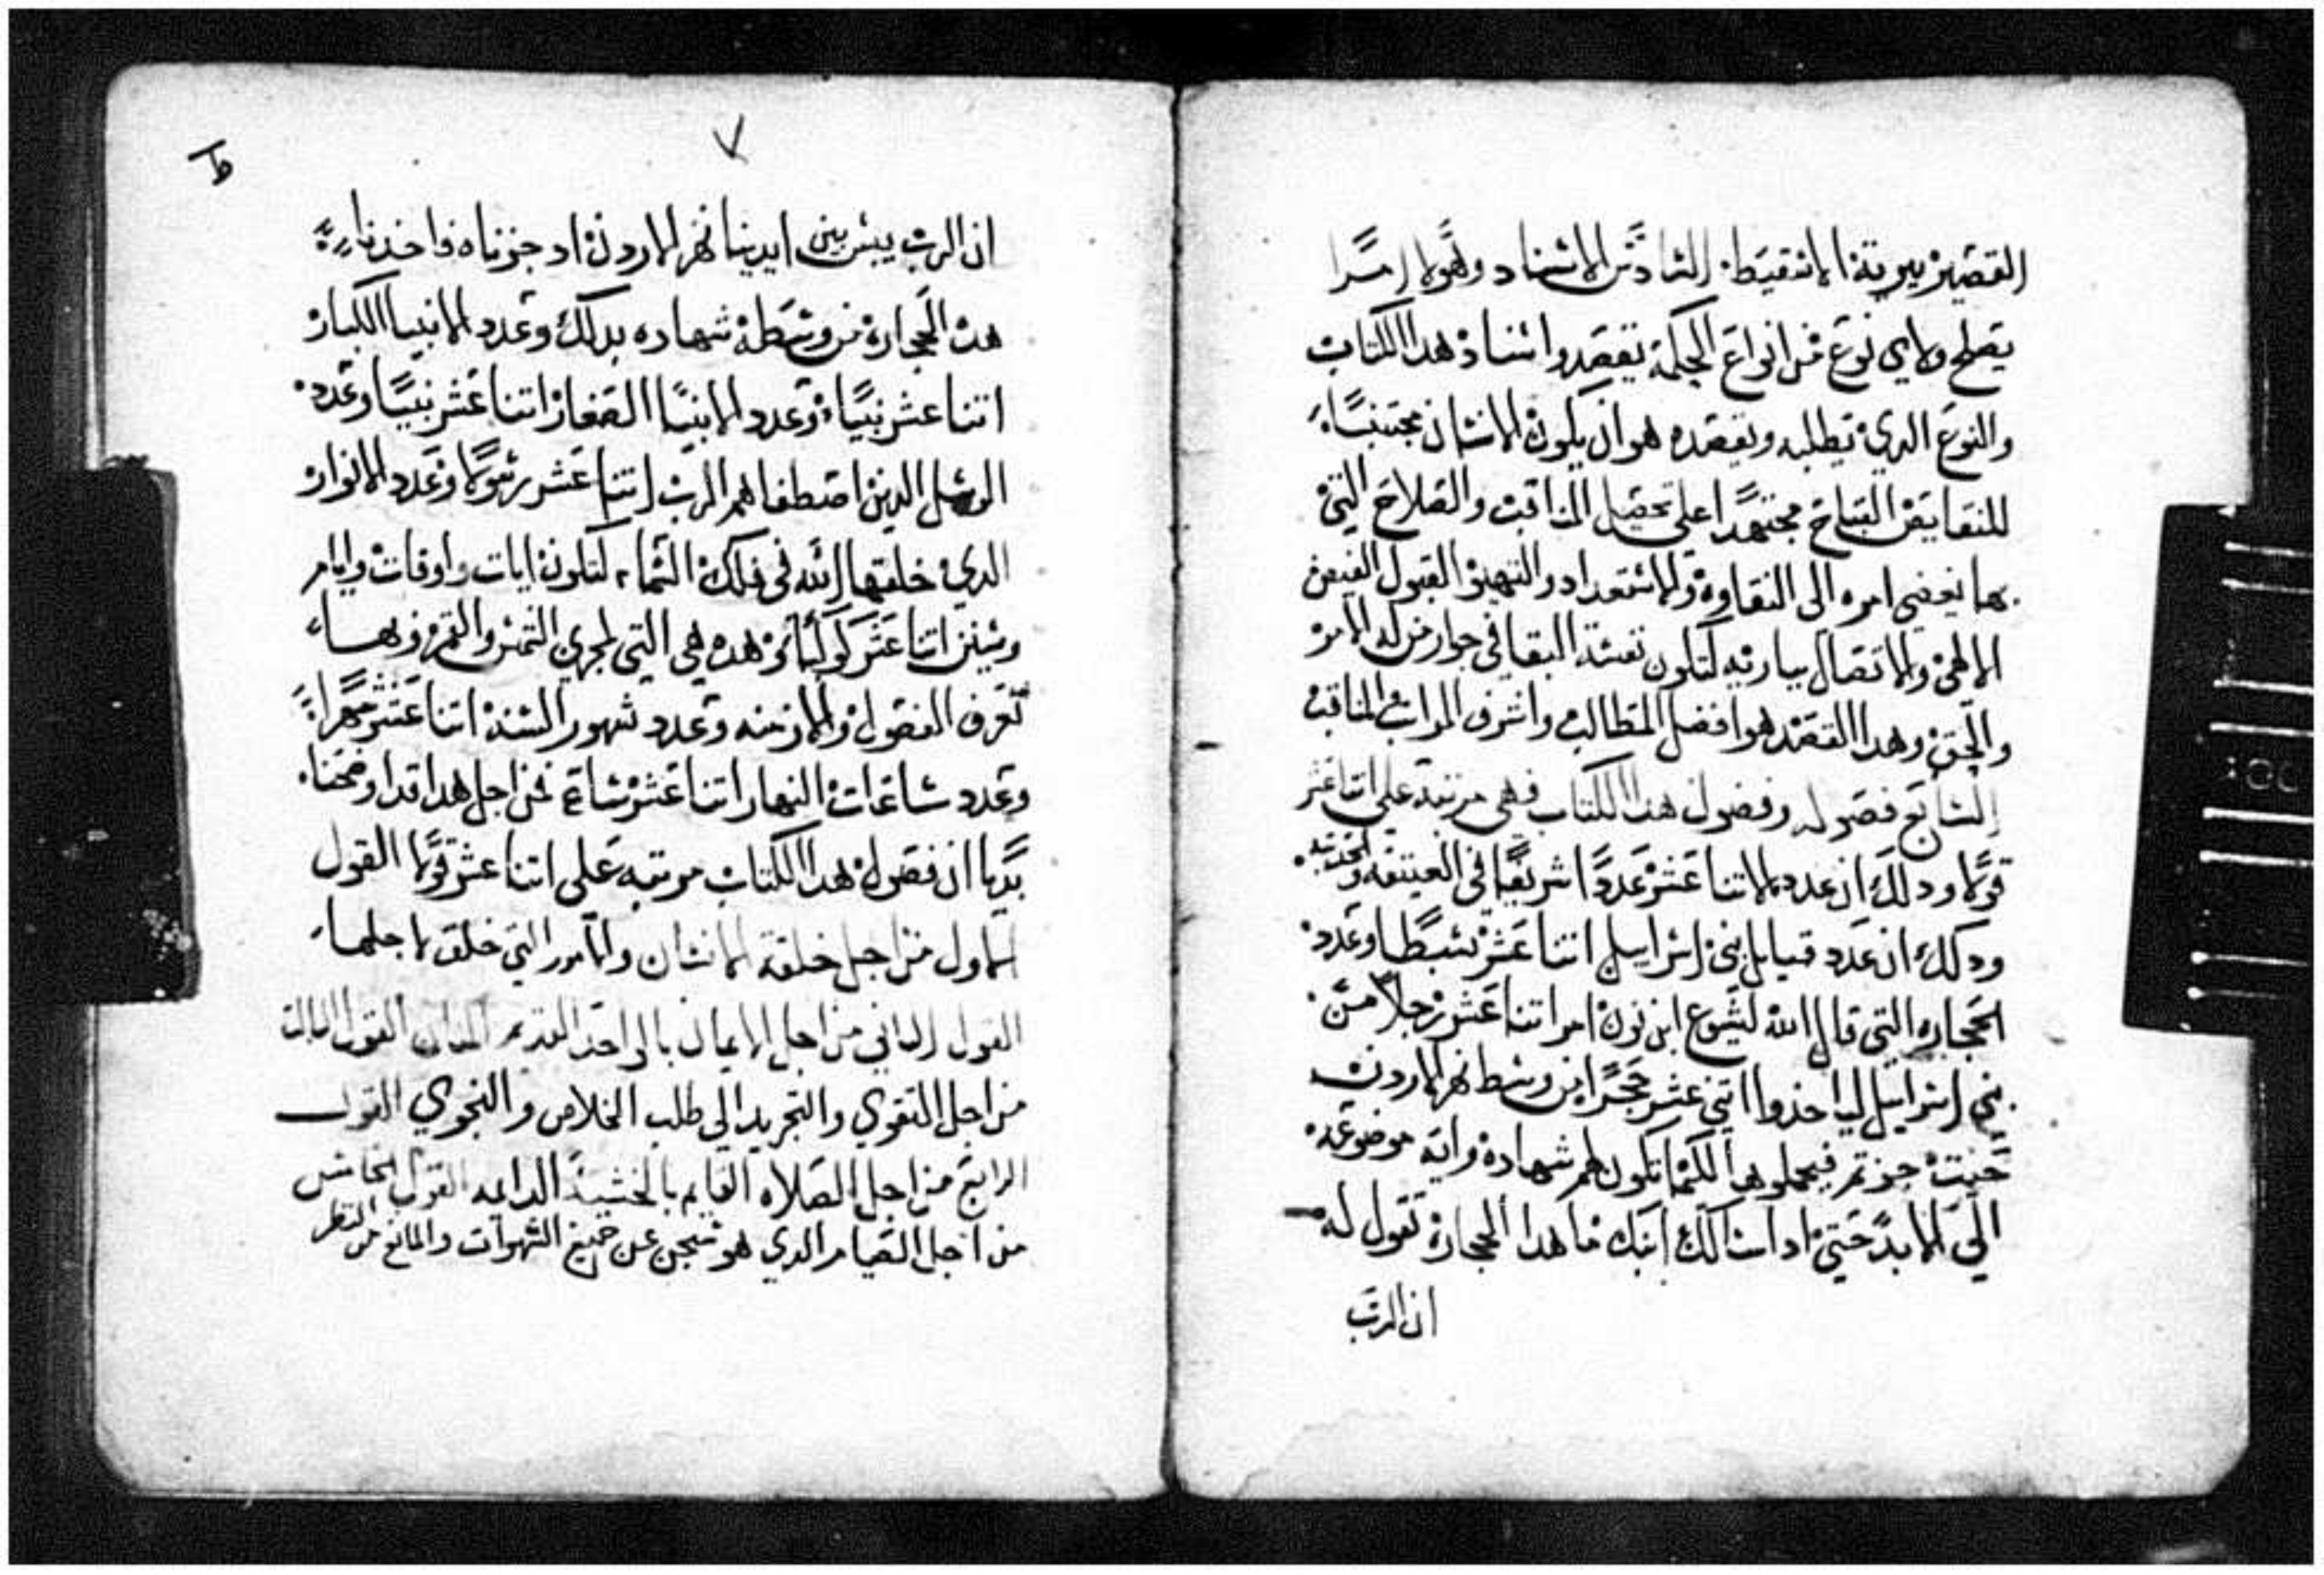 القصير بيرية الانقيط السادس الاسناد وهو لا
يصلح ولاي نوع من انواع الحكمة تقصد واسناد هدا الكتاب
والنوع الدي تطلبه وتقصده هو ان يكون الانسان مجتنبًا
للنقايص القباح مجتهدًا على تحصيل المناقب والصلاح التي
بها يفضي امره الى النقاوة والاستعداد والتهيو لقبول الفيض
الالهي والاتصال بباريه لتكون نفسه البقا في جوار من له الامر
والحق وهدا القصد هو افضل المطالب واشرف المراتب المناقب
السابع فصوله وفصول هدا الكتاب فهي مرتبة على اتنا عشر
قولا ودلك ان عدد الاتنا عشر عددًا شريفًا في العتيقه والحديته
ودلك ان عدد قبايل بني اسراييل اتنا عشر سبطا وعدد
الحجاره التي قال الله ليشوع ابن نون امر اتنا عشر رجلا من
بني اسراييل لياخدوا اتني عشر حجرًا من وسط نهر الاردن
حيت جزتم فيحملوها لكيما تكون لهم شهاده وايه موضوعه
الى الابد حتى ادا سالك ابنك ما هدا الحجارة تقول له
ان الرب
٧
ط
ان الرب يبس بين ايدينا نهر الاردن اد جزناه فاخدنا
هده الحجارة من وسطه شهاده بدلك وعدد الانبيا الكبار
اتنا عشر نبيًا وعدد الانبيا الصغار اتنا عشر نبيًا وعدد
الرسل الدين اصطفاهم الرب اتنا عشر رسولا وعدد الانوار
الدي خلقها الله في فلك السماء لتكون ايات واوقات وايام
وسنين اتنا عشر كوكبًا وهده هي التي لمجري الشمس والقمر وبها
تعرف الفصول والازمنه وعدد شهور السنة اتنا عشر شهرًا
وعدد ساعات النهار اتنا عشر ساعة فمن اجل هدا قد اوضحنا
بديا ان فصول هدا الكتاب مرتبه على اتنا عشر قولا القول
الاول من اجل خلقة الانسان والامور التي خلق لاجلها
القول التاني من اجل الايمان بالواحد القديم القول التالت
من اجل التقوي والتجريد الى طلب الخلاص والنجوي القول
الرابع من اجل الصلاه القايم بالخشية الدايمه القول الخامس
من اجل الصيام الدي هو سجن عن جميع الشهوات والمانع من النظر